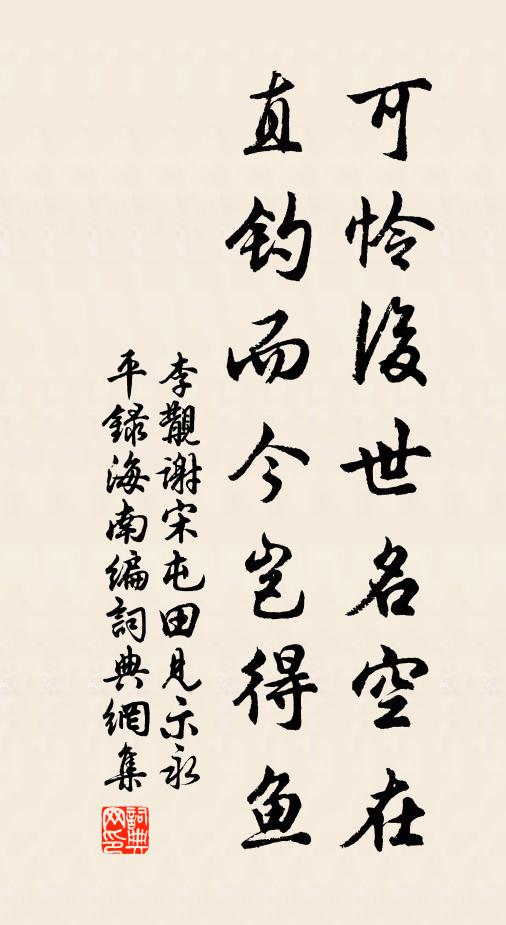 可怜後世名空在
直钓而今岂得鱼
李觏谢宋屯田见示永
平録海南编詞典網集
詞典
网印